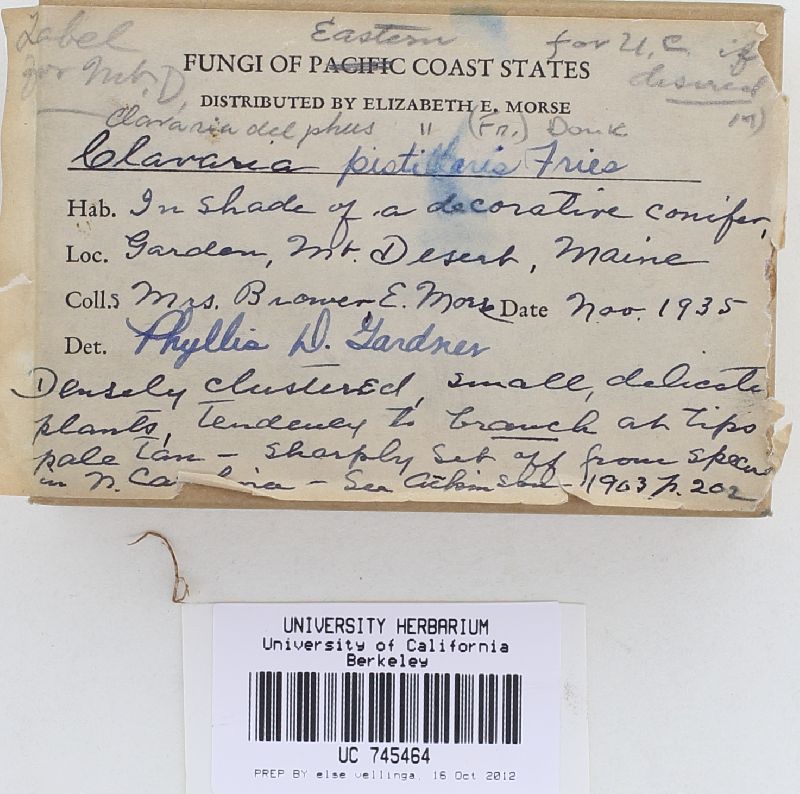 Label Eastern for U.C. if
for Mt. D. desired
FUNGI OF PACIFIC COAST STATES
DISTRIBUTED BY ELIZABETH E. MORSE
Clavaria delphus " (Fr.) Donk
Clavaria pistillaris Fries
Hab. In shade of a decorative conifer,
Loc. Garden, Mt. Desert, Maine
Coll.s Mrs. Brower, E. Morse Date Nov. 1935
Det. Phyllis D. Gardner
Densely clustered, small, delicate
plants, tendency to branch at tips
pale tan - sharply set off from specim
in N. Ca lina - See Atkinson - 1903 p. 202
UNIVERSITY HERBARIUM
University of California
Berkeley
UC 745464
PREP BY else vellinga, 16 Oct 2012